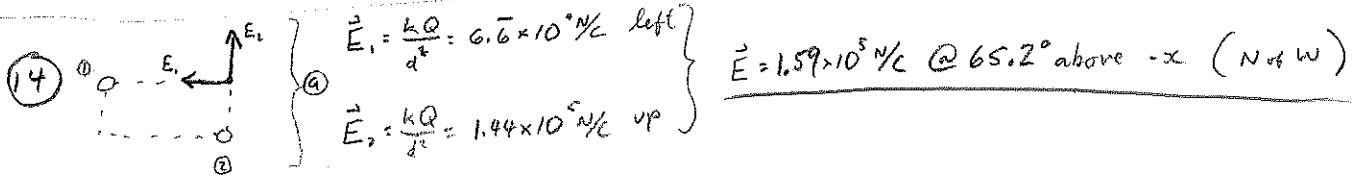 ⑭ ① E₁ E₂ ②
ⓐ E⃗₁ = kQ/d² = 6.6̅ × 10⁴ N/C left
E⃗₂ = kQ/d² = 1.44 × 10⁵ N/C up
E⃗ = 1.59 × 10⁵ N/C @ 65.2° above -x (N of W)